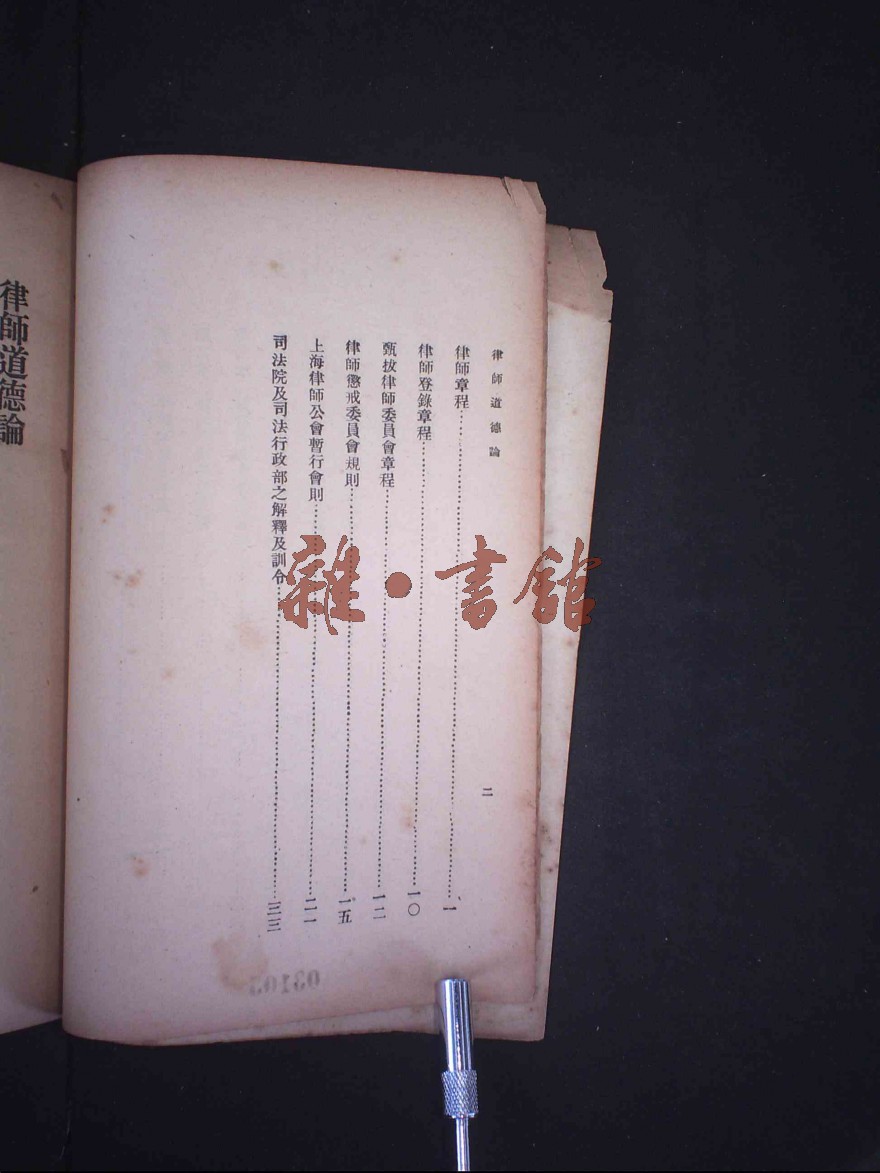 律師道德論
二
律師章程……一
律師登錄章程……一〇
甄拔律師委員會章程……一二
律師懲戒委員會規則……一五
上海律師公會暫行會則……二一
司法院及司法行政部之解釋及訓令……三三
律師道德論
雜·書館